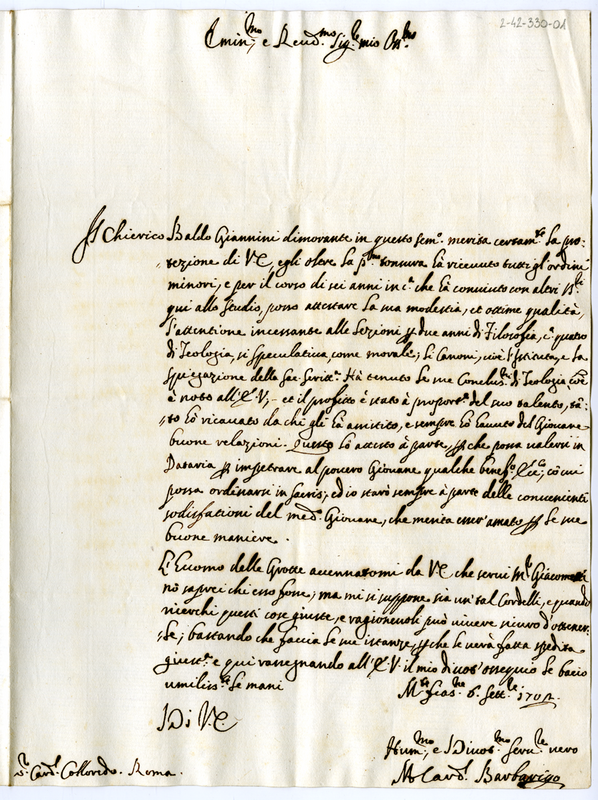 2-42-330-01
Emin.mo, e Reud.mo Sig.re mio Oss.mo
Il Chierico Baldo Giannini dimorante in questo sem.o merita certam.te la pro-
tezione di VE, egli oltre la p.ma tonsura hà riceuuto tutti gl'ordini
minori, e per il corso di sei anni in c.a che hà conuiuto con altri
qui allo studio, posso attestare la sua modestia, et ottime qualità,
l'attentione incessante alle lezioni p due anni di Filosofia, e quatro
di Teologia, si speculatiua, come morale; li Canoni, e la
spiegazione della Sac. Scritt.a Hà tenuto le sue Conclus.ni di Teologia come
è noto all'E.V; et il profitto è stato à proport.e del suo talento, tan-
to hò ricauato da chi gli hà assistito, e sempre hò hauuto del Giouane
buone relazioni. Questo hò attesto à parte, p che possa ualersi in
Dataria p impetrare al pouero Giouane qualche benef.o Ecc.co, co cui
possa ordinarsi in sacris; ed io starò sempre à parte delle conuenienti
sodisfationi del med.o Giouane, che merita esser'amato p le sue
buone maniere.
L'Euomo delle Grotte accennatomi da VE che serui M.r Giacometti
nò saprei chi esso fosse; ma mi si suppone sia un'tal Cordelli, e quando
ricerchi questi cose giuste, e ragioneuoli può uiuere sicuro d'ottener-
le; bastando che faccia le sue istanze, p che le uerrà fatta spedita
giust.a e qui rassegnando all'E.V. il mio diuot'ossequio le bacio
umiliss.te le mani
M.te Fias.ne 6. Sett.re 1702.
Di V.E.
Hum.mo, e Diuot.mo seru.re uero
M Card. Barbarigo
S.r Card. Colloredo. Roma.